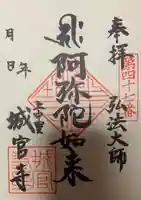 第四十七番
奉拝
弘法大師
阿弥陀如来
城宮寺
年
月 日